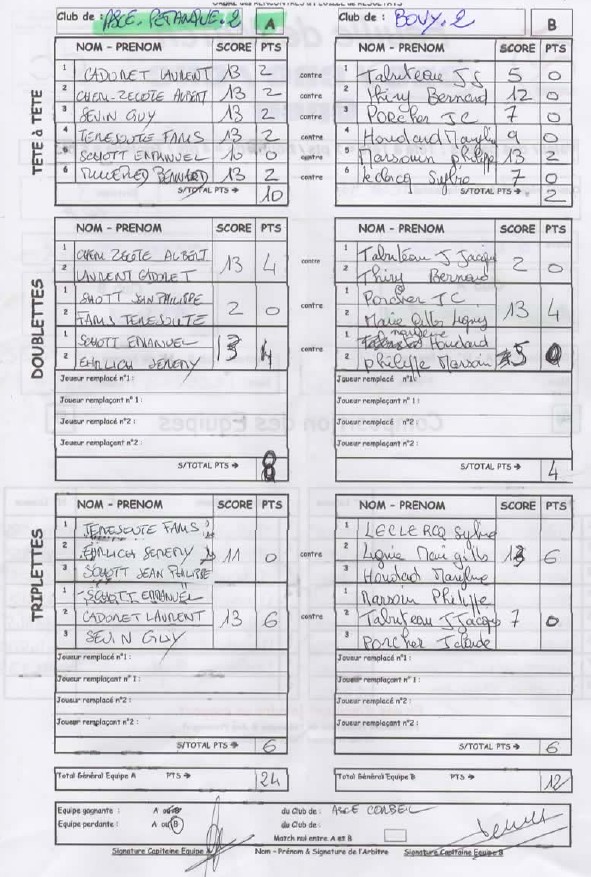 Club de : ASCE. PETANQUE. 2 A Club de : BOUY. 2 B
TÊTE à TÊTE
NOM - PRENOM SCORE PTS NOM - PRENOM SCORE PTS
1 CADORET LAURENT 13 2 contre 1 Tabuteau JJ 5 0
2 CHEM-ZECOTE ALBERT 13 2 contre 2 Thiry Bernard 12 0
3 SEVIN GUY 13 2 contre 3 PORCher JC 7 0
4 TERESOUTE FAMS 13 2 contre 4 Houdard 9 0
5 SCHOTT EMMANUEL 10 0 contre 5 Marsouin philippe 13 2
6 BERNARD 13 2 contre 6 leclacq Sylvie 7 0
S/TOTAL PTS → 10 S/TOTAL PTS → 2
DOUBLETTES
NOM - PRENOM SCORE PTS NOM - PRENOM SCORE PTS
1 CHEM ZECOTE ALBERT 13 4 contre 1 Tabuteau J Jacques 2 0
2 LAURENT CADORET 2 Thiry Bernard
1 SHOTT JEAN PHILIPPE 2 0 contre 1 Porcher J C 13 4
2 FAMS TERESOUTE 2 Marie Gilles
1 SCHOTT EMANUEL 13 4 contre 1 Houdard 5 0
2 EHRLICH JEREMY 2 philippe Marsoin
Joueur remplacé n°1 : Joueur remplacé n°1 :
Joueur remplaçant n° 1 : Joueur remplaçant n° 1 :
Joueur remplacé n°2 : Joueur remplacé n°2 :
Joueur remplaçant n°2 : Joueur remplaçant n°2 :
S/TOTAL PTS → 8 S/TOTAL PTS → 4
TRIPLETTES
NOM - PRENOM SCORE PTS NOM - PRENOM SCORE PTS
1 TERESOUTE FAMS 1 LECLERCQ Sylvie
2 EHRLICH JEREMY 11 0 contre 2 13 6
3 SCHOTT JEAN PHILIPPE 3 Houdard
1 SCHOTT EMMANUEL 1 Marsoin Philippe
2 CADORET LAURENT 13 6 contre 2 Tabuteau J Jacques 7 0
3 SEVIN GUY 3 PORCher J claude
Joueur remplacé n°1 : Joueur remplacé n°1 :
Joueur remplaçant n° 1 : Joueur remplaçant n° 1 :
Joueur remplacé n°2 : Joueur remplacé n°2 :
Joueur remplaçant n°2 : Joueur remplaçant n°2 :
S/TOTAL PTS → 6 S/TOTAL PTS → 6
Total Général Equipe A PTS → 24 Total Général Equipe B PTS → 12
Equipe gagnante : A ou B du Club de : ASCE CORBEIL
Equipe perdante : A ou B du Club de :
Match nul entre A et B
Signature Capitaine Equipe A Nom - Prénom & Signature de l'Arbitre Signature Capitaine Equipe B